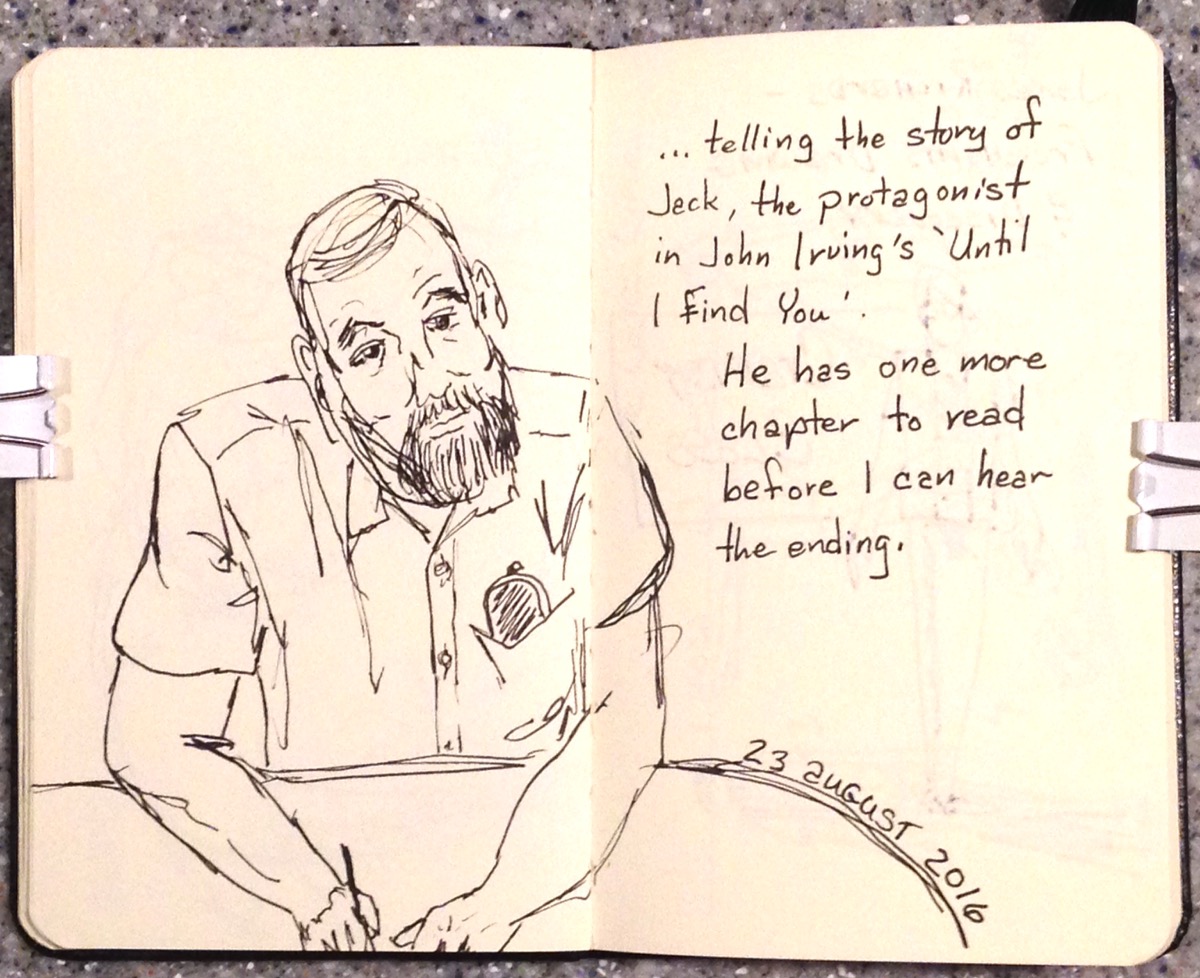 ... telling the story of
Jack, the protagonist
in John Irving's `Until
I Find You'.
He has one more
chapter to read
before I can hear
the ending.
23 AUGUST 2016